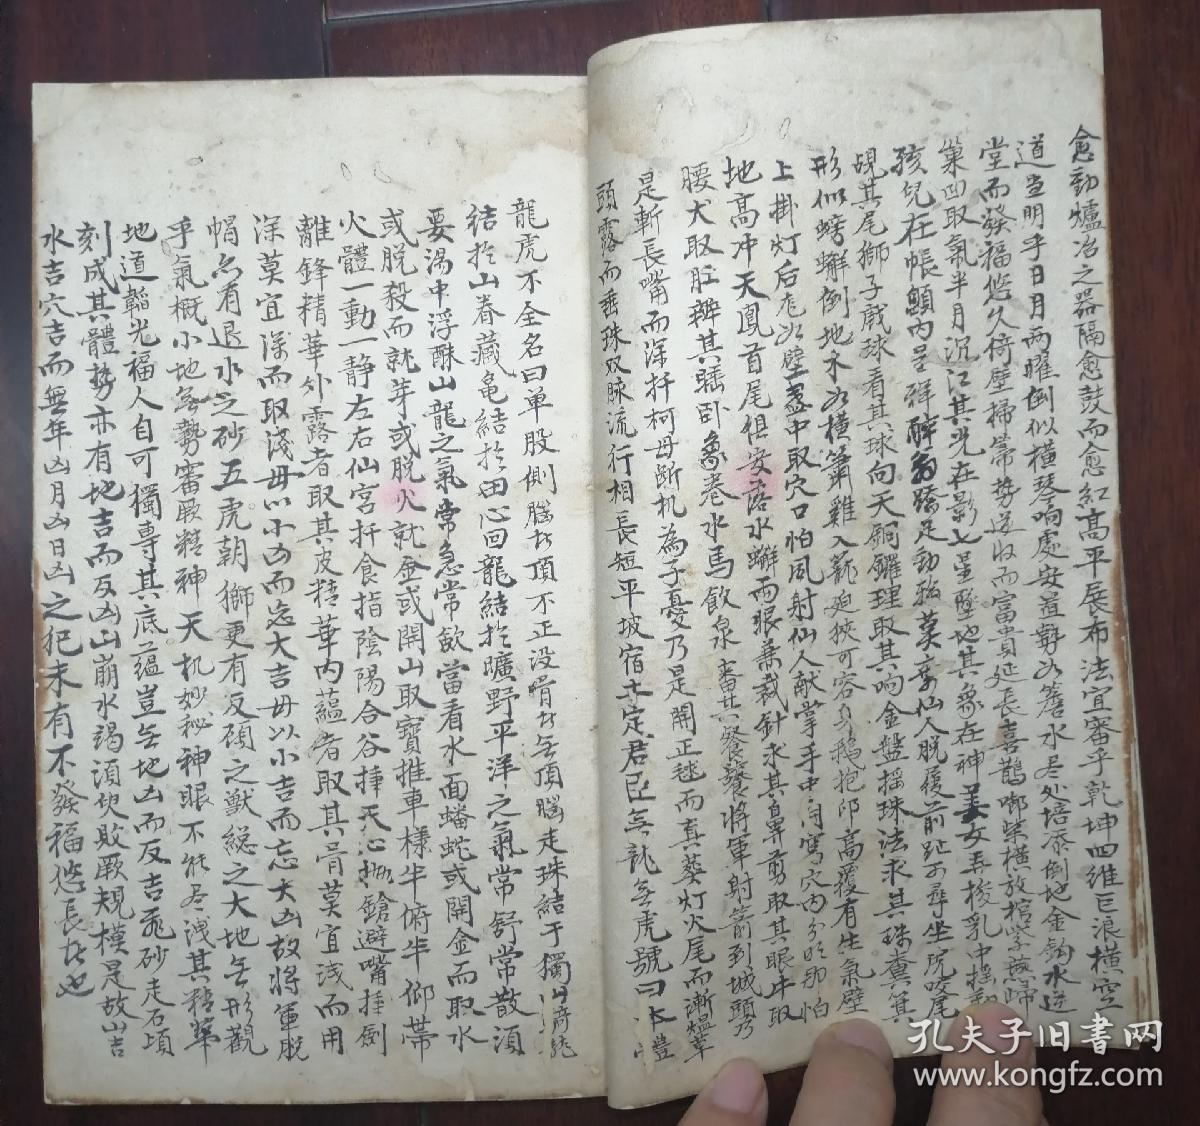 愈勤爐冶之器隔愈鼓而愈紅高平展布法宜審乎乾坤四維巨浪橫空
道宜明乎日月兩曜倒似橫琴响處安置斜如簷水尽处培泰倒地金鈎水逆
堂而發福悠久倚壁掃帚势逆收而富貴延長喜鵲啣柴橫放棺
凹取氣半月沉江其光在影七星墜地其象在神美女弄梭乳中
孩兒在帳顖內呈祥醉翁蹺足勁
仙人脫履前趾可尋坐虎咬尾
覘其尾獅子戲球看其球向天銅鑼理取其响金盤搖珠法求其珠糞箕
形似螃蠏倒地禾如橫簫雞入籠廹狹可容身鵝抱卵高覆有生氣壁
上掛灯后尨如壁盞中取穴口怕風射仙人献掌手中
穴內
怕
地高冲天鳳首尾俱安落水蠏兩眼兼裁針求其鼻剪取其眼牛取
腰犬取肛辨其睡卧象卷水馬飲泉審其餐饕將軍射箭到城頭乃
是斬長嘴而深扦柯母断机為子憂乃是開正毬而真葵灯火尾而漸
頭露而垂珠双脉流行相長短平坡宿土定君臣無龍無虎號曰
龍虎不全名曰单股側腦於頂不正没骨於无頂腦走珠結于獨山
結於山脊藏龜結於田心回龍結於曠野平洋之氣常舒常散須
要湯中浮酥山龍之氣常急常飲當看水面蟠蛇或開金而取水
或脫殺而就芽或脫火就金或開山取寶推車樣半俯半仰帶
火體一動一静左右仙宮扦食指陰陽合谷揷天心抛鎗避嘴揷倒
離鋒精華外露者取其皮精華內蘊者取其骨莫宜浅而用
深莫宜深而取淺毋以小凶而忘大吉毋以小吉而忘大凶故將軍脫
帽亦有退水之砂五虎朝獅更有反頋之獸総之大地无形觀
乎氣概小地無勢審厥精神天机妙秘神眼不能尽洩其精華
地道韜光福人自可獨專其底蘊豈无地凶而反吉乖砂走石頃
刻成其體勢亦有地吉而反凶山崩水渴須臾敗厥規模是故山吉
水吉穴吉而無年凶月凶日凶之犯未有不發福悠長者也
孔夫子旧书网
www.kongfz.com